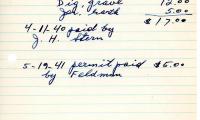 Dig. grave 12.00
5.00
4-11-40 paid by $17.00
J. H. Stern
5-19-41 permit paid $6.00
by Feldman